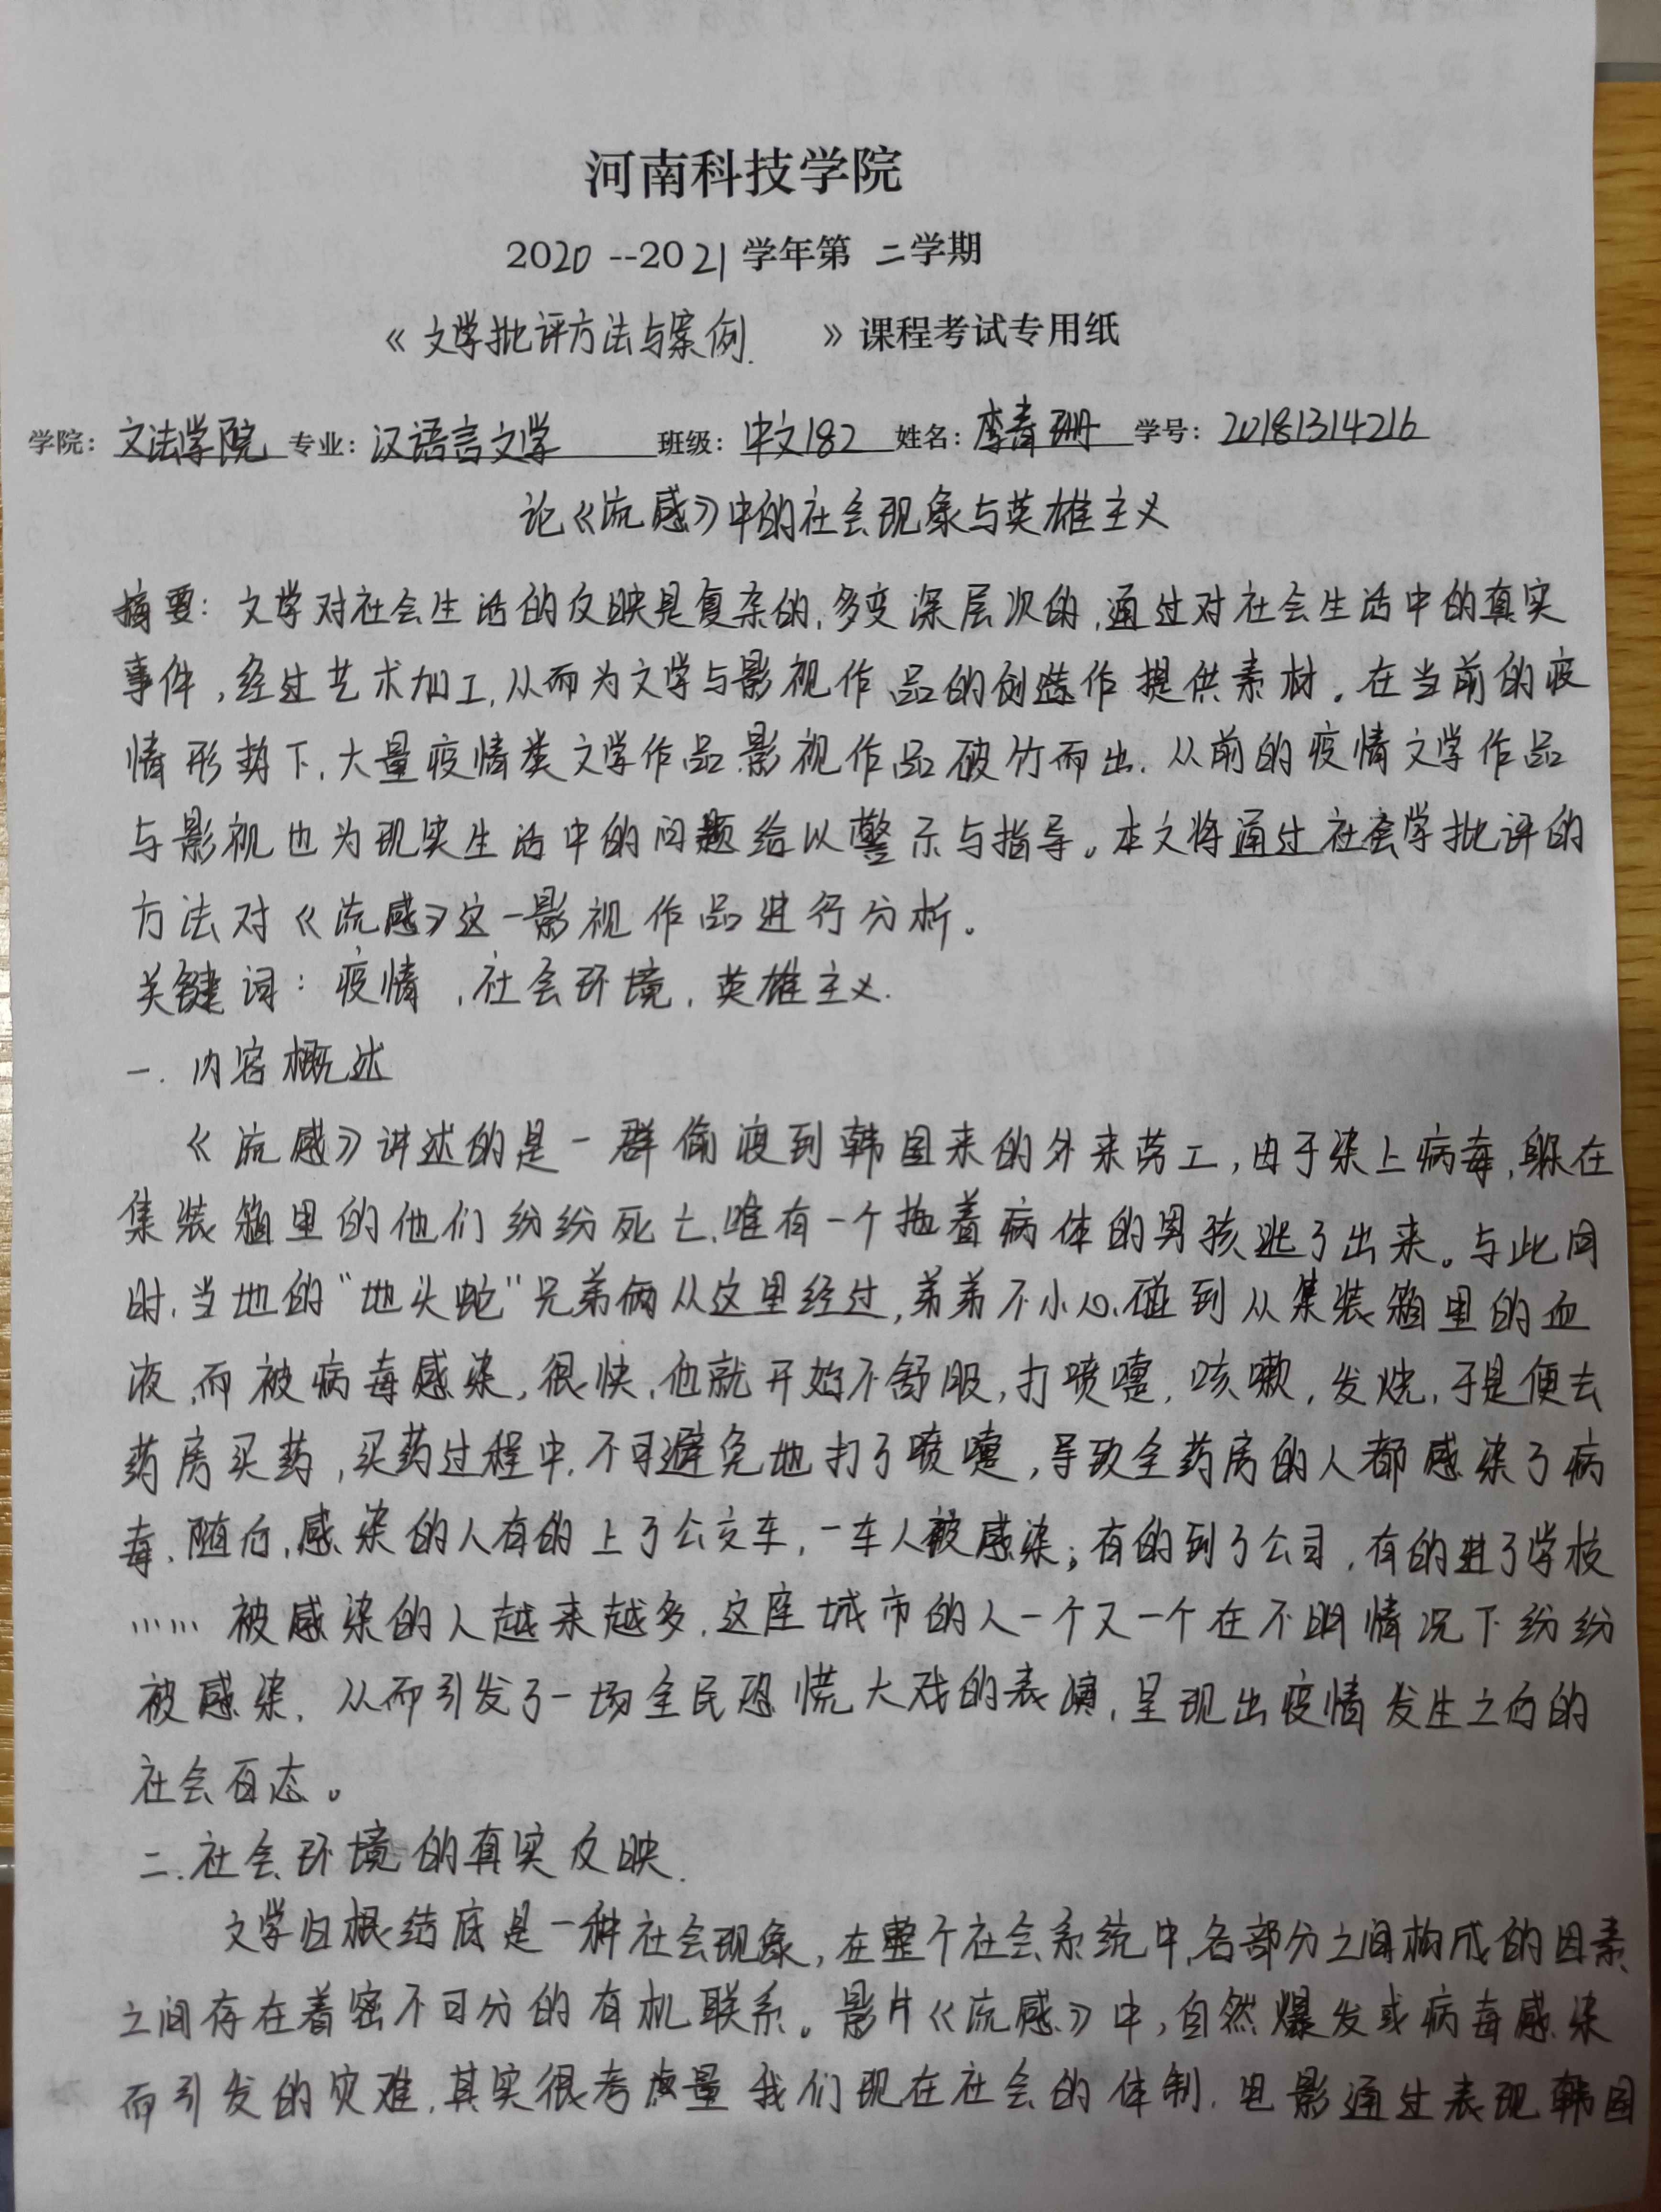 河南科技学院
2020--2021学年第 二学期
《文学批评方法与案例 》课程考试专用纸
学院：文法学院 专业：汉语言文学 班级：中文182 姓名：李青珊 学号：20181314216
论《流感》中的社会现象与英雄主义
摘要：文学对社会生活的反映是复杂的，多变深层次的，通过对社会生活中的真实
事件，经过艺术加工，从而为文学与影视作品的创作提供素材。在当前的疫
情形势下，大量疫情类文学作品影视作品破竹而出，从前的疫情文学作品
与影视也为现实生活中的问题给以警示与指导。本文将通过社会学批评的
方法对《流感》这一影视作品进行分析。
关键词：疫情，社会环境，英雄主义.
一.内容概述
《流感》讲述的是一群偷渡到韩国来的外来劳工，由于染上病毒，躲在
集装箱里的他们纷纷死亡，唯有一个拖着病体的男孩逃了出来。与此同
时，当地的“地头蛇”兄弟俩从这里经过，弟弟不小心碰到从集装箱里的血
液，而被病毒感染，很快，他就开始不舒服，打喷嚏，咳嗽，发烧，于是便去
药房买药，买药过程中，不可避免地打了喷嚏，导致全药房的人都感染了病
毒，随后，感染的人有的上了公交车，一车人被感染；有的到了公司，有的进了学校
……被感染的人越来越多，这座城市的人一个又一个在不明情况下纷纷
被感染，从而引发了一场全民恐慌大戏的表演，呈现出疫情发生之后的
社会百态。
二.社会环境的真实反映.
文学归根结底是一种社会现象，在整个社会系统中，各部分之间构成的因素
之间存在着密不可分的有机联系。影片《流感》中，自然爆发或病毒感染
而引发的灾难，其实很考量我们现在社会的体制，电影通过表现韩国